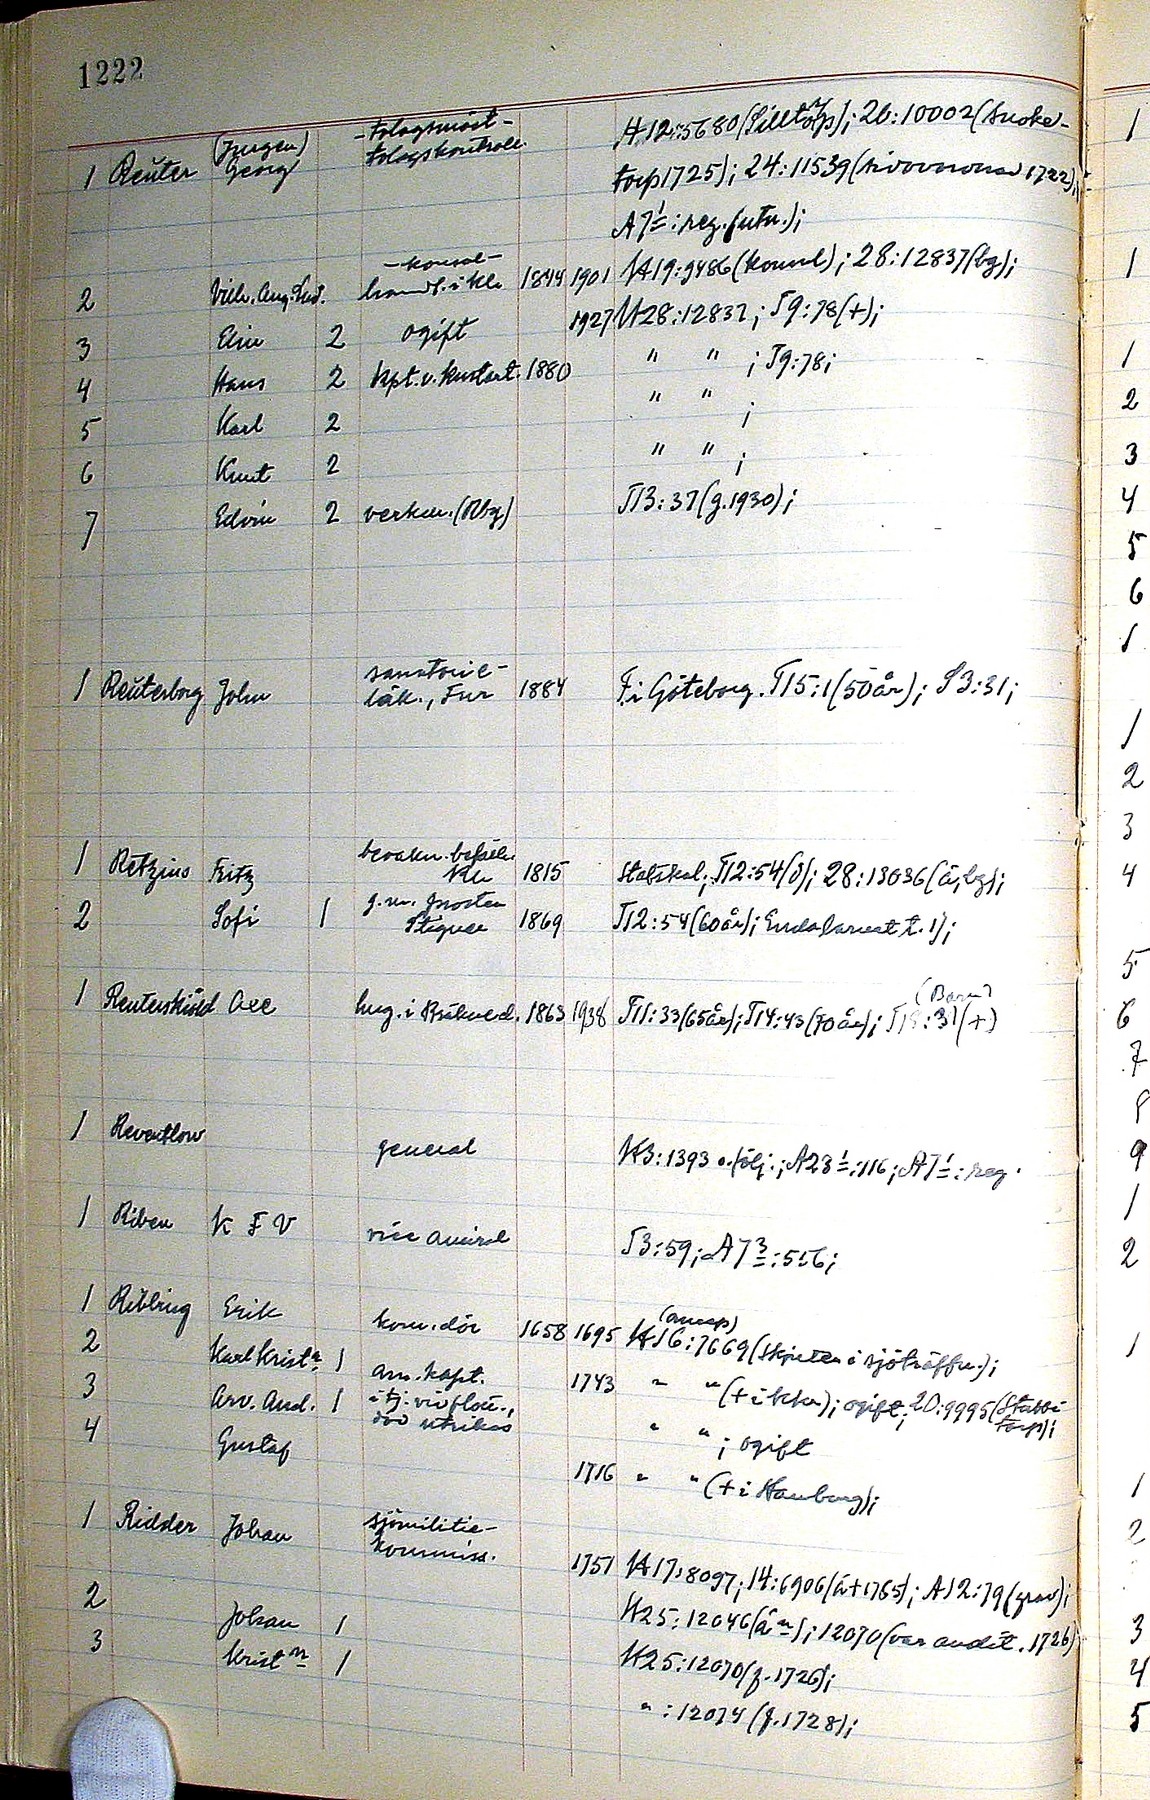 1222
1 Reuter (Jurgen) Georg H12:5680 (Silletorp); 26:10002 (Snoke-
torp 1725); 24:11539 ( 1722);
A7:reg. (utn.);
2 Vilh. Aug. Lud. -konsul- handl. i Kla 1844 1901 H19:9486 (konsul); 28:12837 (bg);
3 Elin 2 ogift 1927 H28:12837; T9:78 (+);
4 Hans 2 kpt. v. kustart. 1880 " " ; T9:78;
5 Karl 2 " " ;
6 Knut 2 " " ;
7 Edvin 2 verkm. (Rby) T13:37 (g. 1930);
1 Reuterborg John sanatorie-
läk., Fur 1884 F. i Göteborg. T15:1 (50 år); S3:31;
1 Retzius Fritz bevakn. befäl.
Kla 1815 Statskal; T12:54 (d); 28:13036 (ä, bg);
2 Sofi 1 g. m. prosten
1869 T12:54 (60 år); Enda barnet t. 1);
1 Reuterskiöld Axel hug. i Bräkned. 1863 1938 T11:33 (65 år); T14:43 (70 år); T18:31 (+)
(Barn)
1 Reventlow general K3:1393 o. följ.; A28:116; A7:reg.
1 Riben K F V vice amiral T3:59; A7:556;
1 Ribbing Erik kom.dör 1658 1695 H16:7669 (skjuten i sjöträffn.);
2 Karl Krist. 1 am. kapt. 1743 " " (+ i kka); ogift; 20:9995 (Stubbe-
torp);
3 Arv. And. 1 i tj. vid flott.,
död utrikes " " ; ogift
4 Gustaf 1716 " " (+ i Hamburg);
1 Ridder Johan sjömilitie-
kommiss. 1751 H17:8097; 14:6906 (ä + 1765); A12:79 (grav);
2 Johan 1 H25:12046 (ä); 12070 (var audit. 1726)
3 Krist 1 H25:12070 (f. 1726);
" :12074 (f. 1728);
1
1
1
2
3
4
5
6
1
1
2
3
4
5
6
7
8
9
1
2
1
1
2
3
4
5